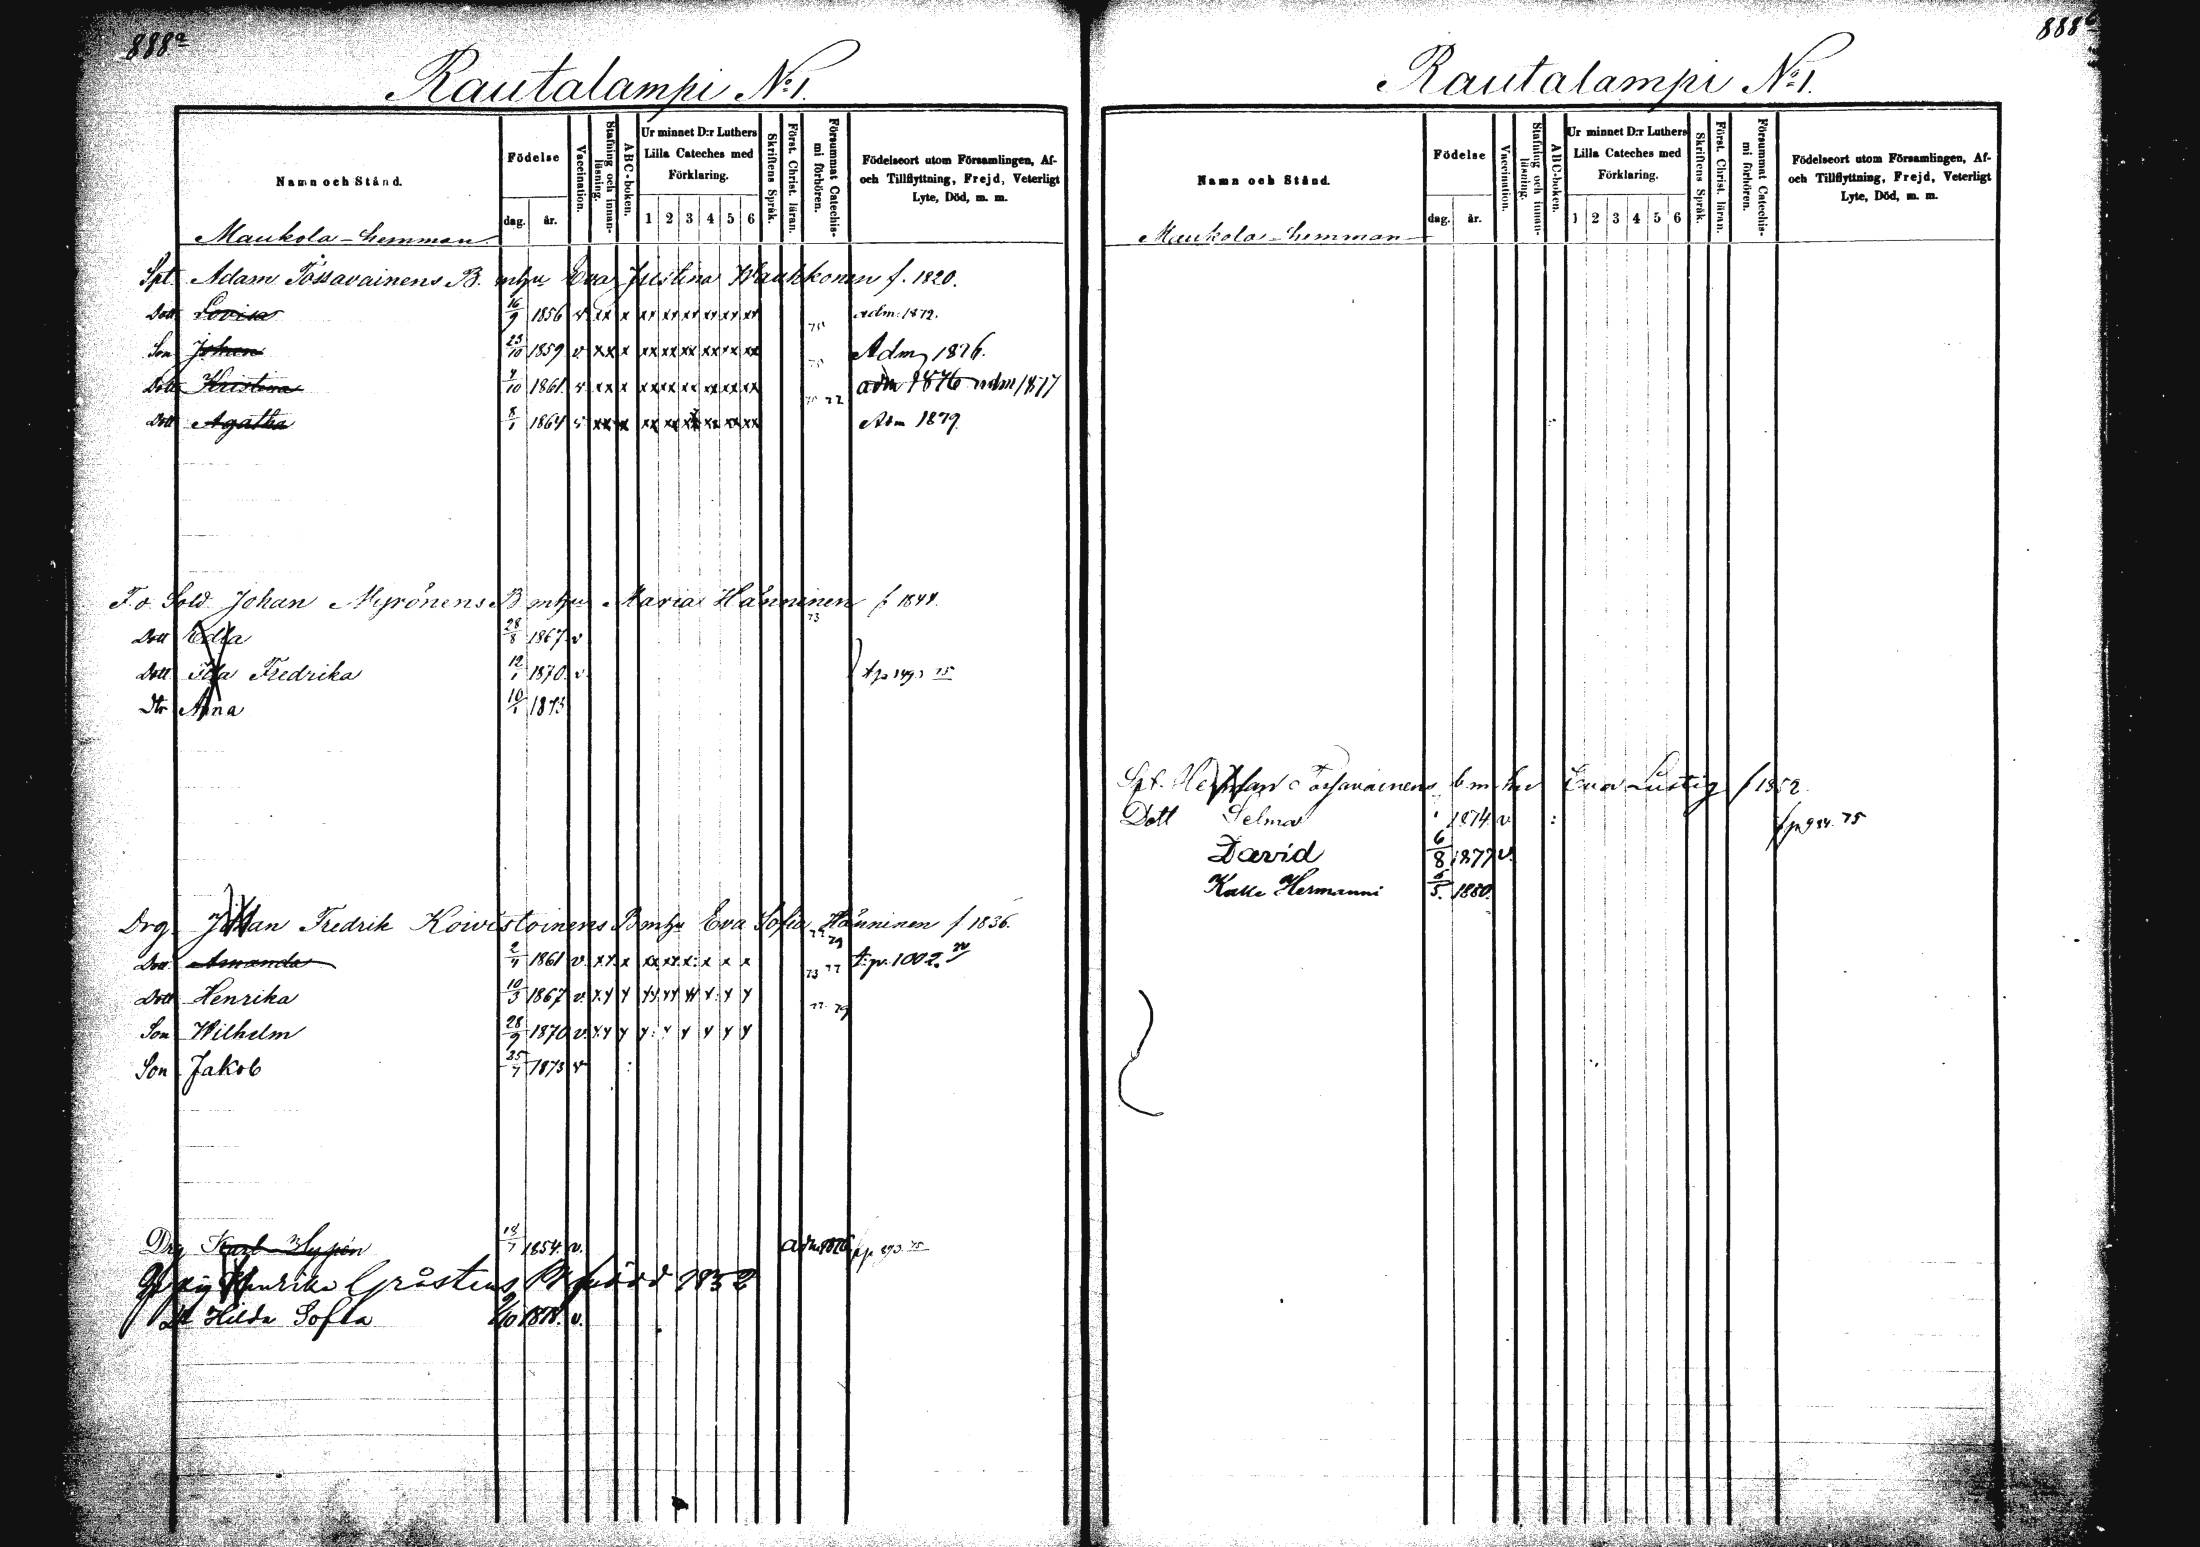 888a
Rautalampi No 1.
Namn och Stånd.
Födelse
dag.
år.
Vaccination.
Stafning och innanläsning.
ABC-boken.
Ur minnet D:r Luthers
Lilla Cateches med
Förklaring.
1 2 3 4 5 6
Skriftens Språk.
Först. Christ. läran.
Försummat Catechismi förhören.
Födelseort utom Församlingen, Af-
och Tillflyttning, Frejd, Veterligt
Lyte, Död, m. m.
Maukola-hemman.
Spt. Adam Tössavainens B. mhu Eva Justina Waukkonen f. 1820.
Dott Lovisa 16/9 1856 v xx x xx xx xx xx xx xx 70 adm. 1872.
Son Johan 23/10 1859 v. xx x xx xx xx xx xx xx 75 Adm 1876.
Dott Kristina 4/10 1861 v xx x xx xx xx xx xx xx 72 adm 1876 adm 1877
Dott Agatha 8/1 1864 v xx x xx xx xx xx xx xx Adm 1879.
F.d. Sold Johan Myrönens B mhu Maria Hänninen f 1844.
73
Dott Edla 28/8 1867 v
Dott Ida Fredrika 12/1 1870 v
Dtr Anna 10/1 1873
Drg Johan Fredrik Koivistoinens B mhu Eva Sofia Hänninen f 1836.
Dott Amanda 2/4 1861 v. xx x xx xx x x x x 73 77 t.p. 1002.
Dott Henrika 10/3 1867 v. 77 79
Son Wilhelm 28/9 1870 v.
Son Jakob 25/7 1873 v
Drg Karl Hypén 18/7 1854. v. adm 1876
Henrika Gråstens född 1852
Dt Hilda Sofia 9/10 1878. v.
888b
Rautalampi No 1.
Namn och Stånd.
Födelse
dag.
år.
Vaccination.
Stafning och innanläsning.
ABC-boken.
Ur minnet D:r Luthers
Lilla Cateches med
Förklaring.
1 2 3 4 5 6
Skriftens Språk.
Först. Christ. läran.
Försummat Catechismi förhören.
Födelseort utom Församlingen, Af-
och Tillflyttning, Frejd, Veterligt
Lyte, Död, m. m.
Maukola-hemman
Spt. Herman Tössavainens b m hu Eva Lustig f 1852.
Dott Selma 1874 v
David 6/8 1877 v.
Kalle Hermanni 5/5. 1880.